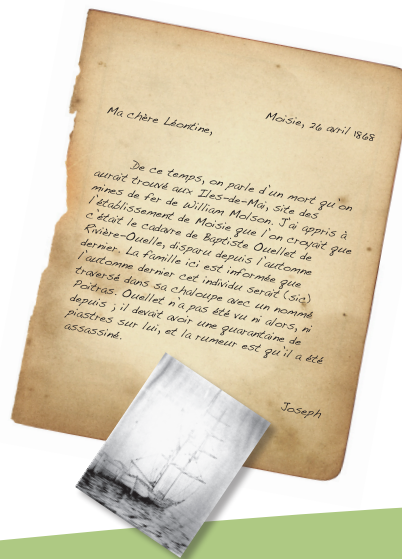 Moisie, 26 avril 1868
Ma chère Léontine,
De ce temps, on parle d'un mort qu'on
aurait trouvé aux Iles-de-Mai, site des
mines de fer de William Molson. J'ai appris à
l'établissement de Moisie que l'on croyait que
c'était le cadavre de Baptiste Ouellet de
Rivière-Ouelle, disparu depuis l'automne
dernier. La famille ici est informée que
l'automne dernier cet individu serait (sic)
traversé dans sa chaloupe avec un nommé
Poitras. Ouellet n'a pas été vu ni alors, ni
depuis ; il devait avoir une quarantaine de
piastres sur lui, et la rumeur est qu'il a été
assassiné.
Joseph